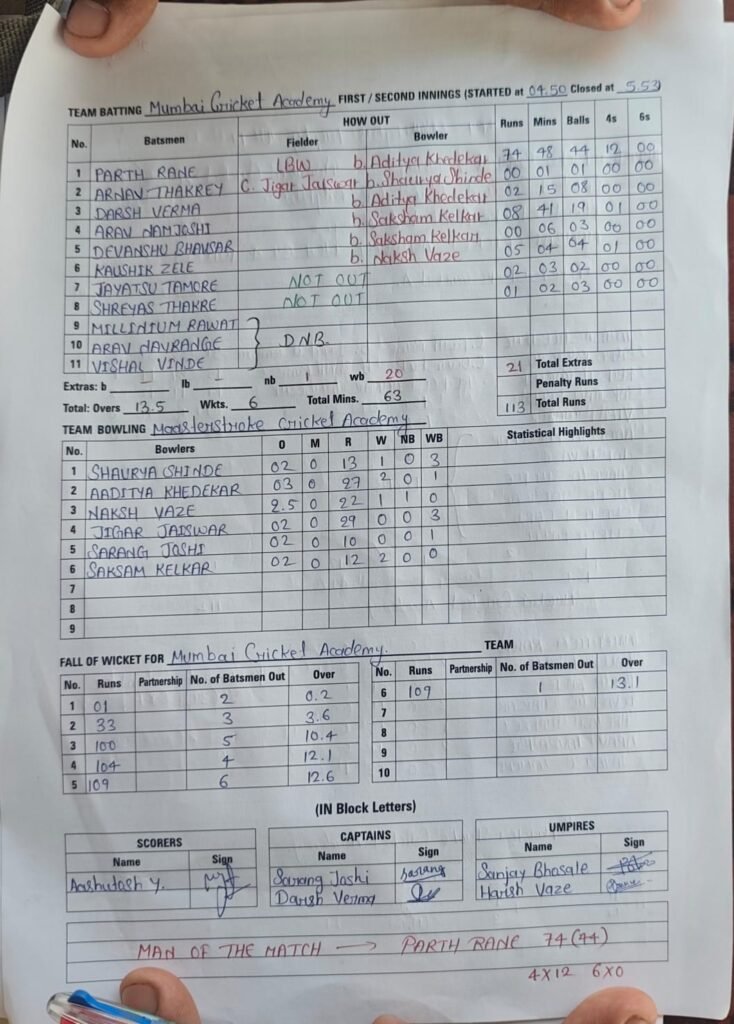 TEAM BATTING Mumbai Cricket Academy FIRST / SECOND INNINGS (STARTED at 04.50 Closed at 5.53)
No. Batsmen HOW OUT Runs Mins Balls 4s 6s
Fielder Bowler
1 PARTH RANE LBW b. Aditya Khedekar 74 48 44 12 00
2 ARNAV THAKREY C. Jigar Jaiswar b. Shaurya Shinde 00 01 01 00 00
3 DARSH VERMA b. Aditya Khedekar 02 15 08 00 00
4 ARAV NAMJOSHI b. Saksham Kelkar 08 41 19 01 00
5 DEVANSHU BHAVSAR b. Saksham Kelkar 00 06 03 00 00
6 KAUSHIK ZELE b. Naksh Vaze 05 04 04 01 00
7 JAYATSU TAMORE NOT OUT 02 03 02 00 00
8 SHREYAS THAKRE NOT OUT 01 02 03 00 00
9 MILLINIUM RAWAT
10 ARAV NAVRANGE D.N.B.
11 VISHAL VINDE
Extras: b - lb - nb 1 wb 20 21 Total Extras
Penalty Runs
Total: Overs 13.5 Wkts. 6 Total Mins. 63 113 Total Runs
TEAM BOWLING Maasterstroke Cricket Academy
No. Bowlers O M R W NB WB Statistical Highlights
1 SHAURYA SHINDE 02 0 13 1 0 3
2 AADITYA KHEDEKAR 03 0 27 2 0 1
3 NAKSH VAZE 2.5 0 22 1 1 0
4 JIGAR JAISWAR 02 0 29 0 0 3
5 SARANG JOSHI 02 0 10 0 0 1
6 SAKSAM KELKAR 02 0 12 2 0 0
7
8
9
FALL OF WICKET FOR Mumbai Cricket Academy. TEAM
No. Runs Partnership No. of Batsmen Out Over No. Runs Partnership No. of Batsmen Out Over
1 01 2 0.2 6 109 1 13.1
2 33 3 3.6 7
3 100 5 10.4 8
4 104 4 12.1 9
5 109 6 12.6 10
(IN Block Letters)
SCORERS CAPTAINS UMPIRES
Name Sign Name Sign Name Sign
Aashutosh Y. Sarang Joshi Sarang Sanjay Bhosale
Darsh Verma Harish Vaze
MAN OF THE MATCH → PARTH RANE 74 (44)
4X12 6X0